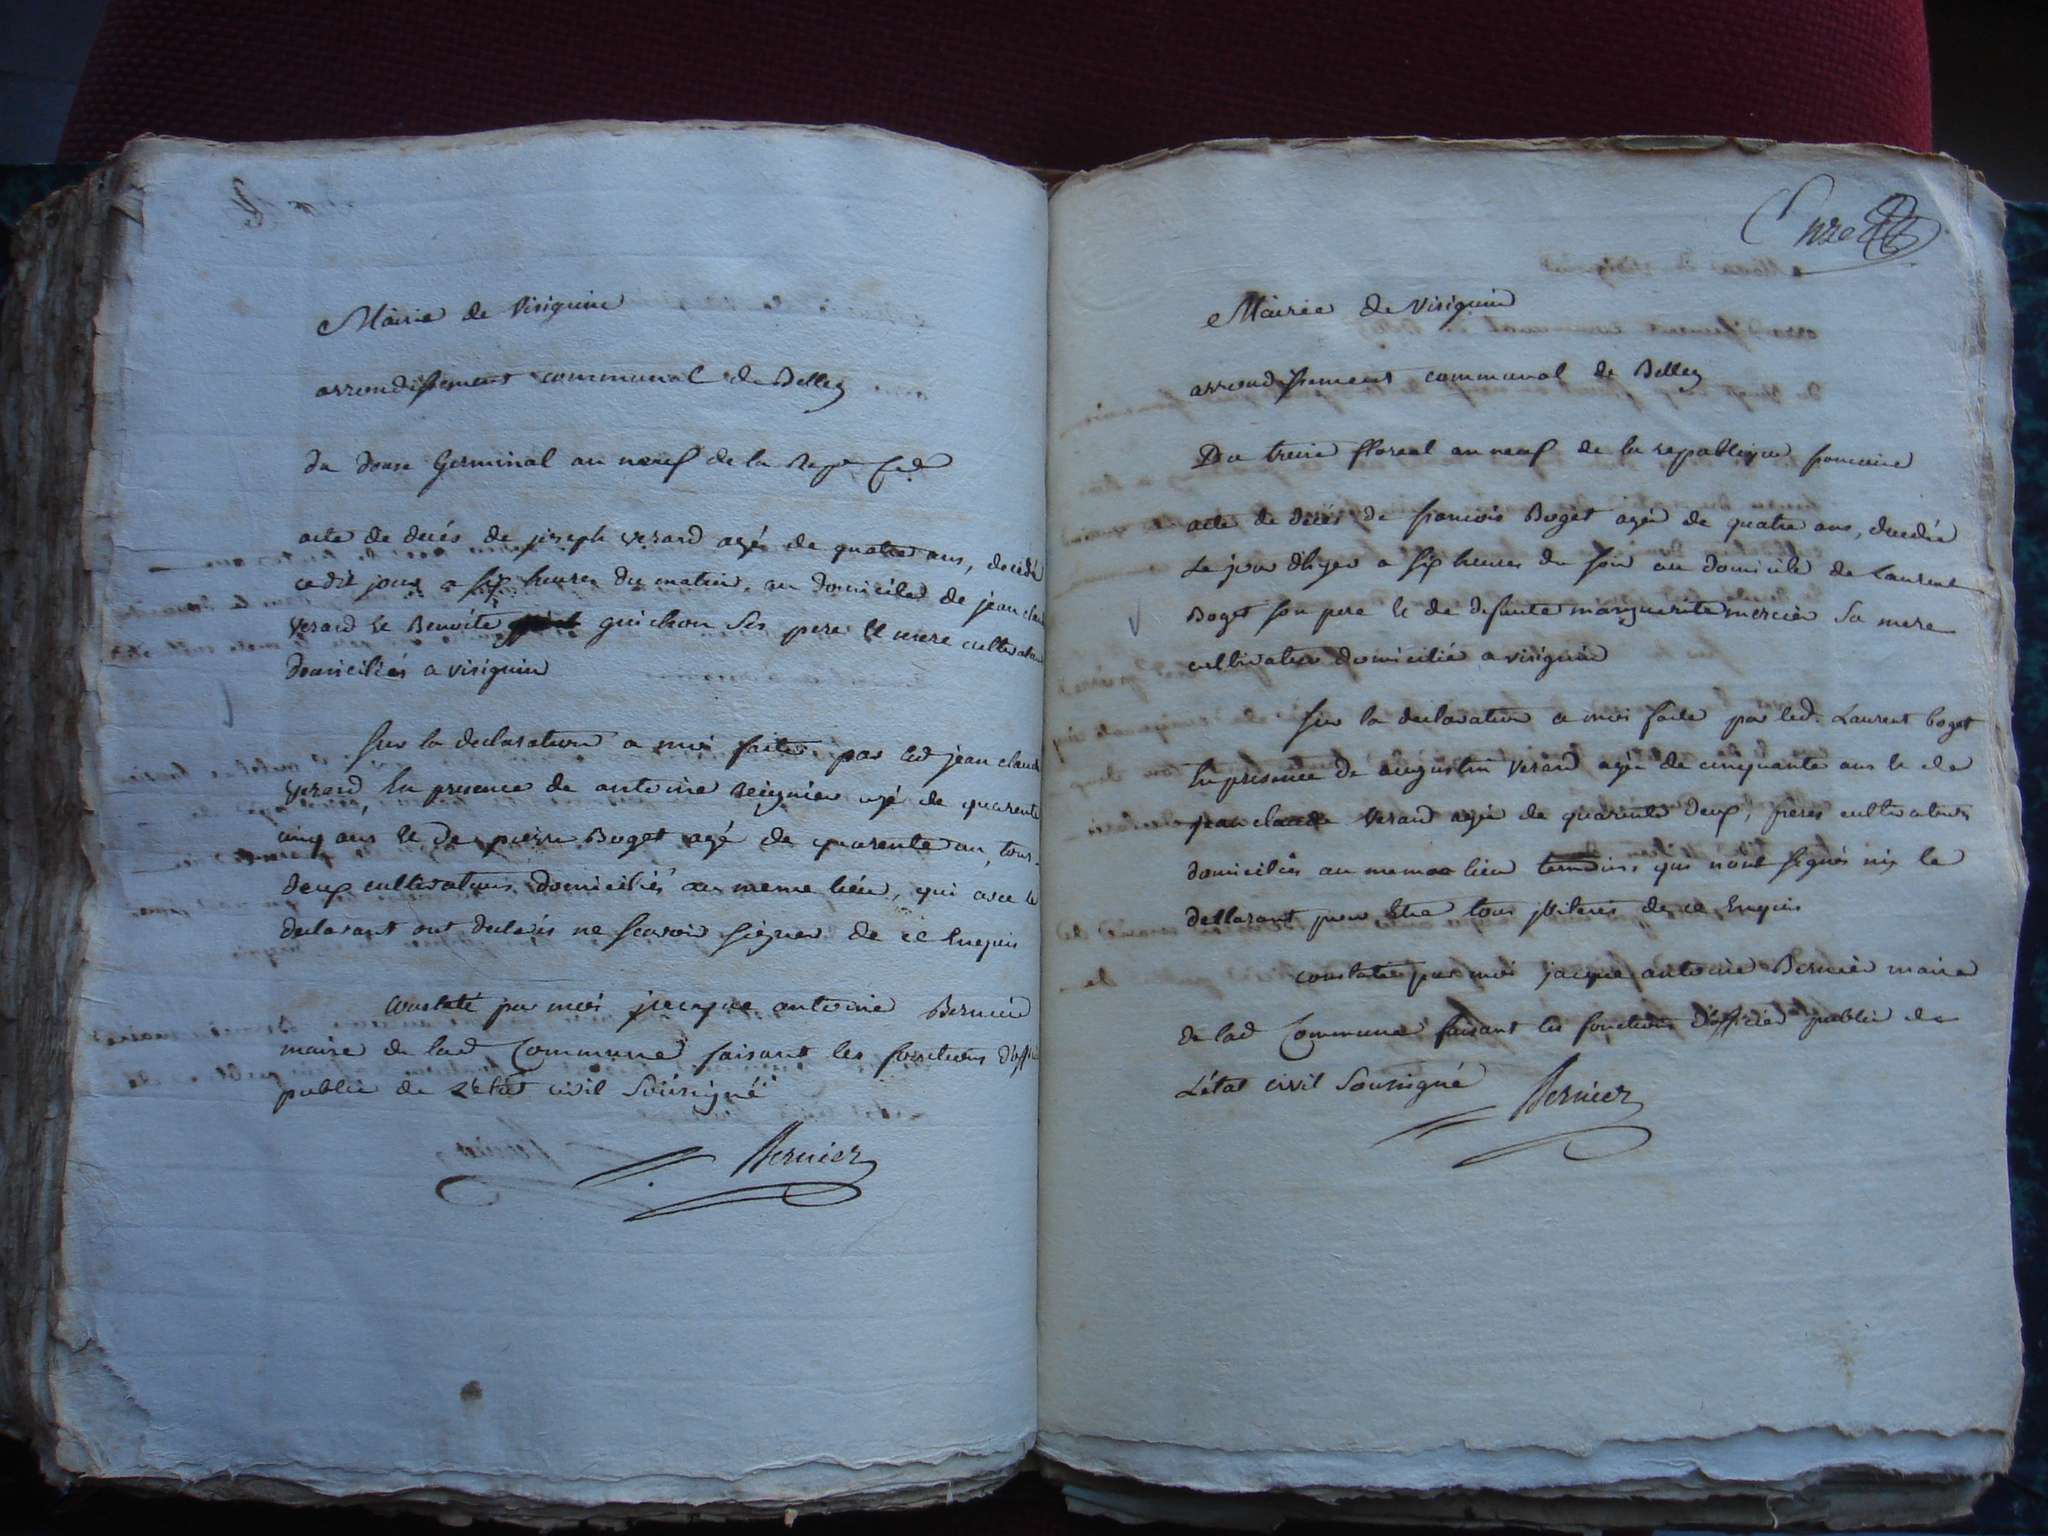 Mairie de Visignin
arrondissement communal de Belley
du douze Germinal an neuf de la Rep.e
acte de decés de joseph verard agés de quatre ans, decedé
cedit jour a six heures du matin, au domicile de jean claude
verard et Benoite guichon ses pere et mere cultivateurs
domiciliés a visignin
sur la declaration a moi faite par led jean claude
verard, en presence de antoine agé de quarente
cinq ans et de pierre Boget agé de quarente an, tous
deux cultivateurs domiciliés au meme lieu, qui avec le
declarant ont declarés ne scavoir signer de ce enquis
constaté par moi jacque antoine Bernier
maire de lad Commune faisant les fonctions d'officier
public de L'etat civil Soussigné
Bernier
onze
Mairie de Visignin
arrondissement communal de Belley
Du treize floreal an neuf de la republique francaise
acte de décés de francois Boget agée de quatre ans, decedée
Le jour d'hyer a six heures du soir au domicile de Laurent
Boget son pere et de defunte marguerite mercier sa mere
cultivateur domicilié a visignin
sur la declaration a moi faite par led. Laurent boget
En presence de augustin verard agée de cinquante ans et de
jean claude verard agée de quarente deux, freres cultivateurs
domiciliés au meme lieu temoins, qui n'ont signés ni le
dellarant pour Etre tous illiterés de ce Enquis
constaté par moi jacque antoine Bernier maire
de lad Commune faisant les fonctions d'officier public de
L'état civil Soussigné Bernier